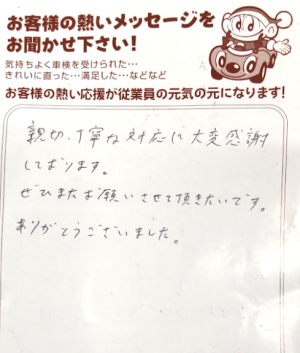 お客様の熱いメッセージを
お聞かせ下さい!
気持ちよく車検を受けられた…
きれいに直った…満足した…などなど
お客様の熱い応援が従業員の元気の元になります!
親切、丁寧な対応に大変感謝
しております。
ぜひまたお願いさせて頂きたいです。
ありがとうございました。